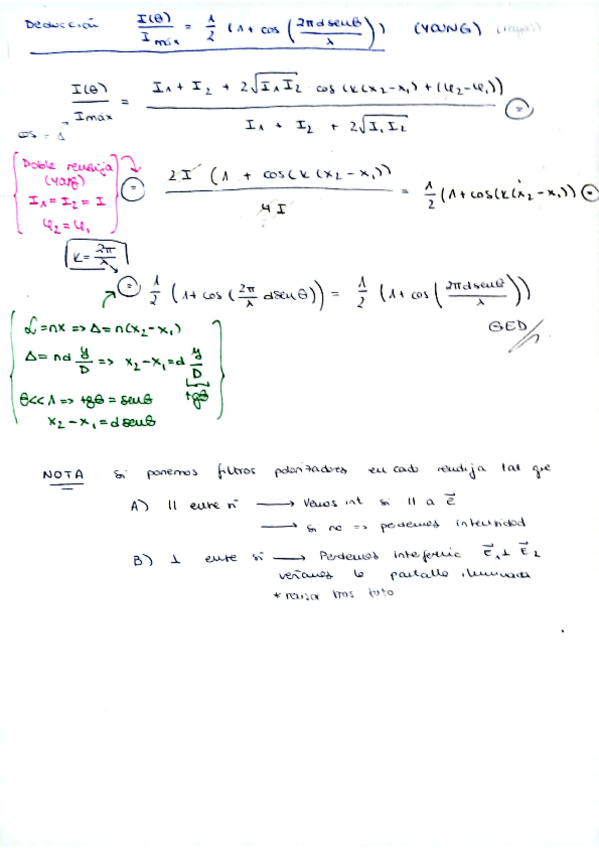 Deducción I(θ)/Imáx = 1/2 (1 + cos (2πdsenθ/λ)) (YOUNG)
I(θ)/Imáx = (I1 + I2 + 2√I1I2 cos (k(x2-x1) + (φ2-φ1))) / (I1 + I2 + 2√I1I2) =
cos = 1
Doble rendija
(Yang)
I1 = I2 = I
φ2 = φ1
= 2I (1 + cos(k(x2-x1))) / 4I = 1/2 (1 + cos(k(x2-x1)) =
k = 2π/λ
= 1/2 (1 + cos (2π/λ dsenθ)) = 1/2 (1 + cos (2πdsenθ/λ))
QED
L = nx => Δ = n(x2-x1)
Δ = nd y/D => x2-x1 = d y/D
tgθ
θ<<1 => tgθ = senθ
x2-x1 = dsenθ
NOTA Si ponemos filtros polarizadores en cada rendija tal que
A) || entre sí → Vemos int si || a e
→ si no => perdemos intensidad
B) ⊥ entre si → Perdemos interferenc e1 ⊥ e2
veríamos la pantalla iluminada